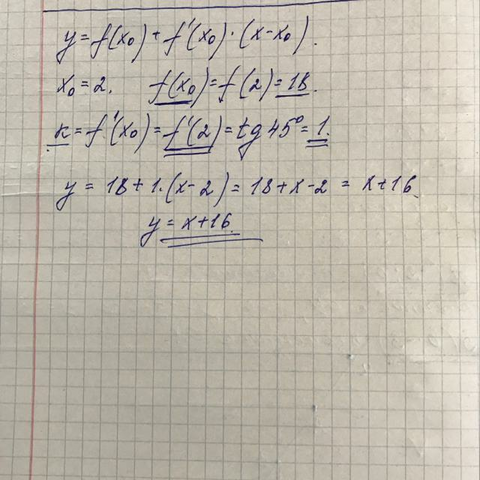 y = f(x₀) + f'(x₀) · (x - x₀).
x₀ = 2. f(x₀) = f(2) = 18.
k = f'(x₀) = f'(2) = tg 45° = 1.
y = 18 + 1 · (x - 2) = 18 + x - 2 = x + 16.
y = x + 16.